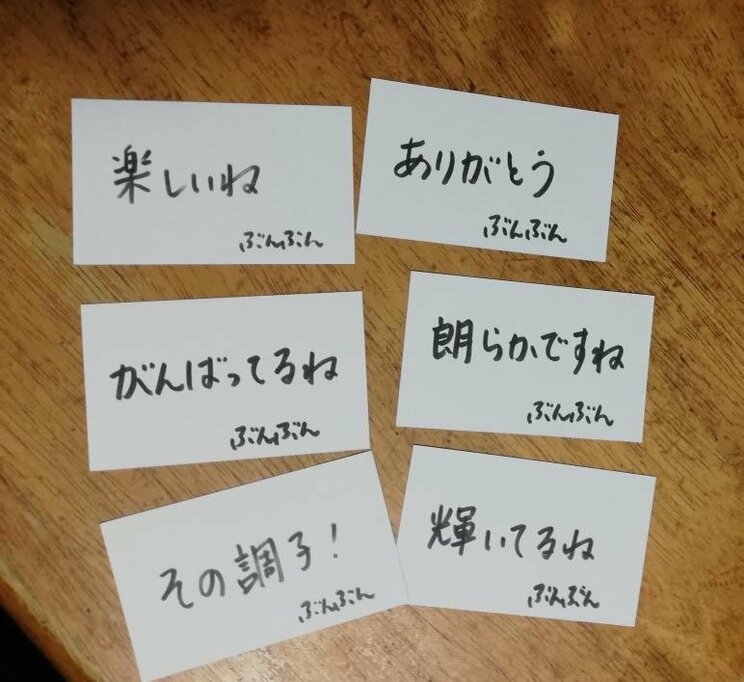 楽しいね
ぶんぶん
ありがとう
ぶんぶん
がんばってるね
ぶんぶん
朗らかですね
ぶんぶん
その調子!
ぶんぶん
輝いてるね
ぶんぶん